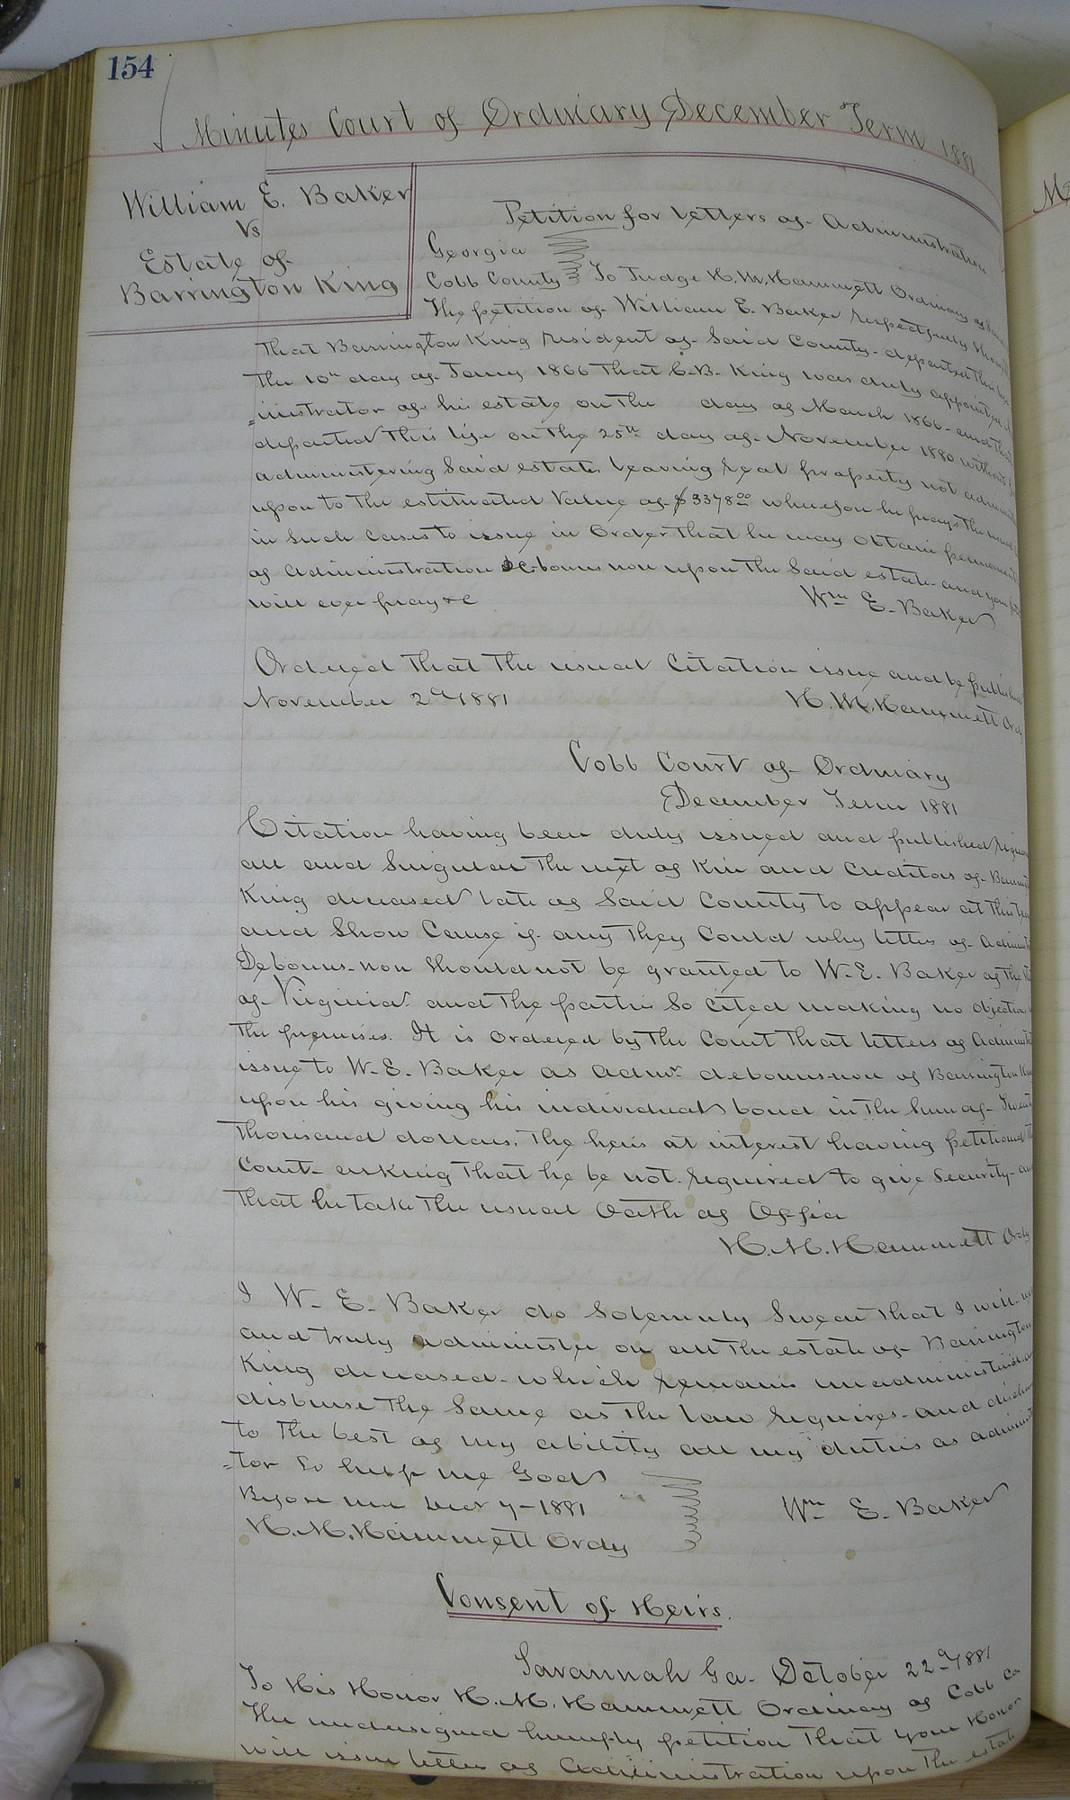 154
Minutes Court of Ordinary December Term 1881
William E. Baker
Vs
Estate of
Barrington King
Petition for Letters of Administration
Georgia
Cobb County To Judge H. M. Hammett Ordinary of
The petition of William E. Baker respectfully
that Barrington King resident of Said County departed this
the 10th day of Jany 1866 that C. B. King was duly appointed
=inistrator of his estate on the day of March 1866 and that
departed this life on the 25th day of November 1880 without
administering Said estate leaving real property not
upon to the estimated value of $3378.00 wherefore he prays the usual
in Such Cases to issue in Order that he may obtain permanent
of Administration De bonis non upon the Said estate and your
will ever pray &c Wm E. Baker
Ordered that the usual Citation issue and be published
November 2d 1881 H. M. Hammett Ordy
Cobb Court of Ordinary
December Term 1881
Citation having been duly issued and published
all and Singular the next of Kin and Creditors of
King deceased late of Said County to appear at this
and Show Cause if any they Could why letters of
De bonis-non Should not be granted to W. E. Baker of the
of Virginia and the parties So cited making no objection
the premises. It is ordered by the Court that letters of
issue to W. E. Baker as admr. debonis-non of Barrington
upon his giving his individual bond in the Sum of
Thousand dollars. The heirs at interest having petitioned
Court asking that he be not required to give Security
that he take the usual Oath of Office
H. M. Hammett Ordy
I W. E. Baker do Solemnly Swear that I will
and truly administer on all the estate of Barrington
King deceased which remains unadministered
disburse the Same as the law requires and
to the best of my ability all my duties as
=tor So help me God
Before me Decr 7- 1881 Wm E. Baker
H. M. Hammett Ordy
Consent of Heirs.
Savannah Ga. October 22d 1881
To His Honor H. M. Hammett Ordinary of Cobb Co
The undersigned humbly petition that your Honor
will issue letters of Administration upon the